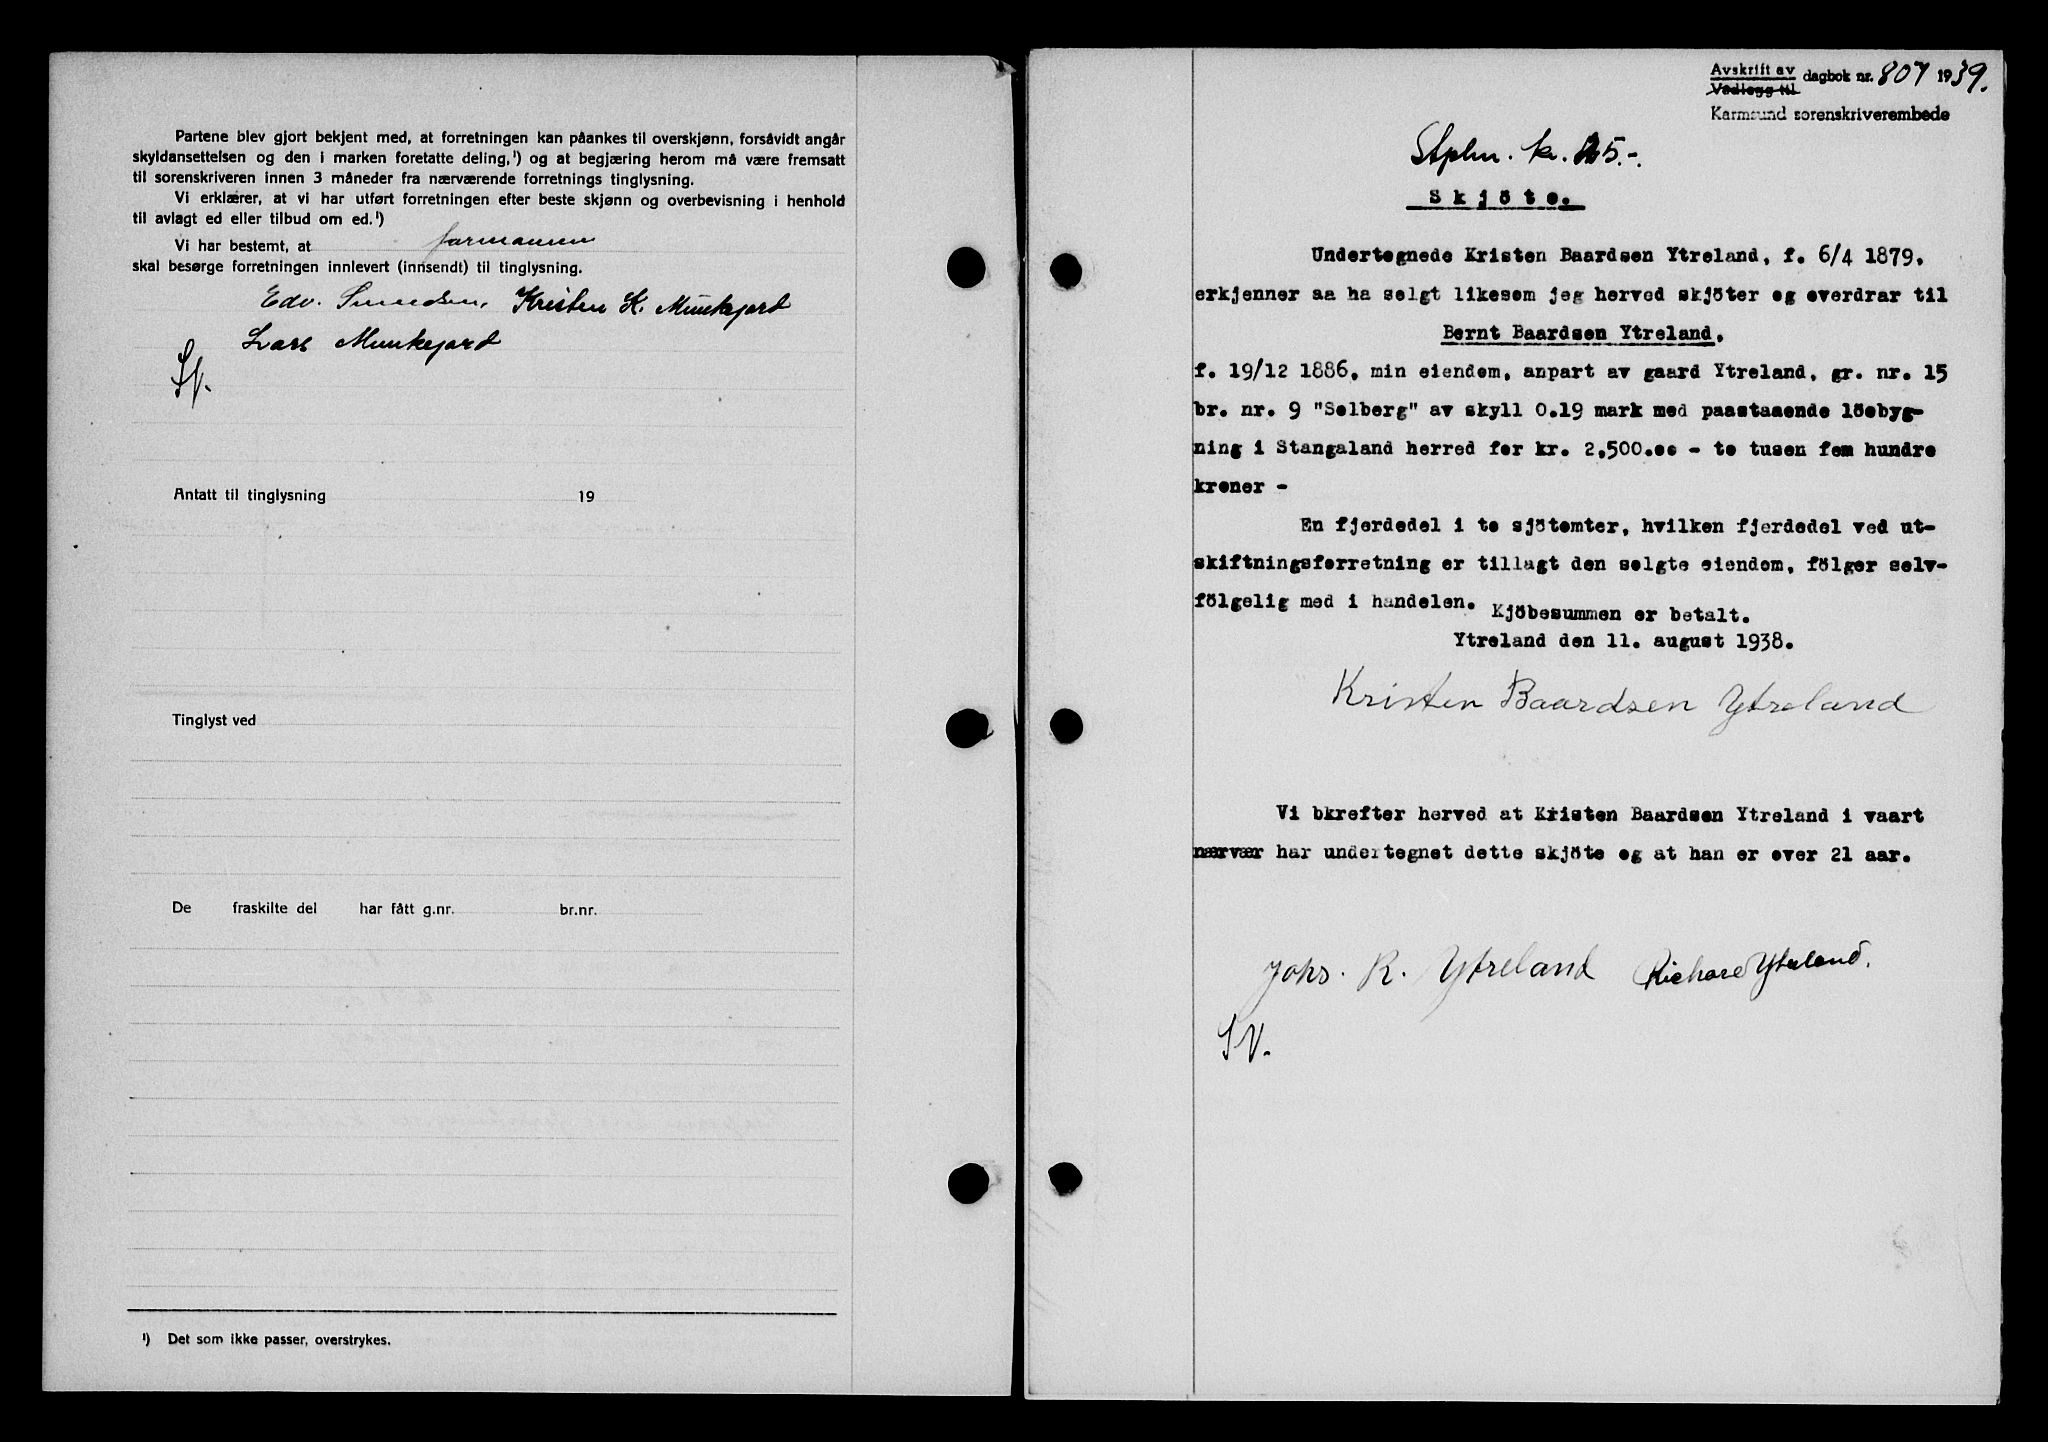 Partene blev gjort bekjent med, at forretningen kan påankes til overskjønn, forsåvidt angår
skyldansettelsen og den i marken foretatte deling,¹) og at begjæring herom må være fremsatt
til sorenskriveren innen 3 måneder fra nærværende forretnings tinglysning.
Vi erklærer, at vi har utført forretningen efter beste skjønn og overbevisning i henhold
til avlagt ed eller tilbud om ed.¹)
Vi har bestemt, at formannen
skal besørge forretningen innlevert (innsendt) til tinglysning.
Edv. Simensen, Kristen K. Munkejord
Lars Munkejord
SV.
Antatt til tinglysning 19
Tinglyst ved
De fraskilte del har fått g.nr. br.nr.
¹) Det som ikke passer, overstrykes.
Avskrift av dagbok nr. 807 1939.
Vedlegg til
Karmsund sorenskriverembede
Stplm. kr. 25.-.
Skjöte.
Undertegnede Kristen Baardsen Ytreland, f. 6/4 1879,
erkjenner aa ha solgt likesom jeg herved skjöter og overdrar til
Bernt Baardsen Ytreland,
f. 19/12 1886, min eiendom, anpart av gaard Ytreland, gr. nr. 15
br. nr. 9 "Solberg" av skyll 0.19 mark med paastaaende löebyg-
ning i Stangaland herred for kr. 2,500.oo - to tusen fem hundre
kroner -
En fjerdedel i to sjötomter, hvilken fjerdedel ved ut-
skiftningsforretning er tillagt den solgte eiendom, fölger selv-
fölgelig med i handelen. Kjöbesummen er betalt.
Ytreland den 11. august 1938.
Kristen Baardsen Ytreland
Vi bkrefter herved at Kristen Baardsen Ytreland i vaart
nærvær har undertegnet dette skjöte og at han er over 21 aar.
Johs. R. Ytreland Richard Ytreland.
SV.